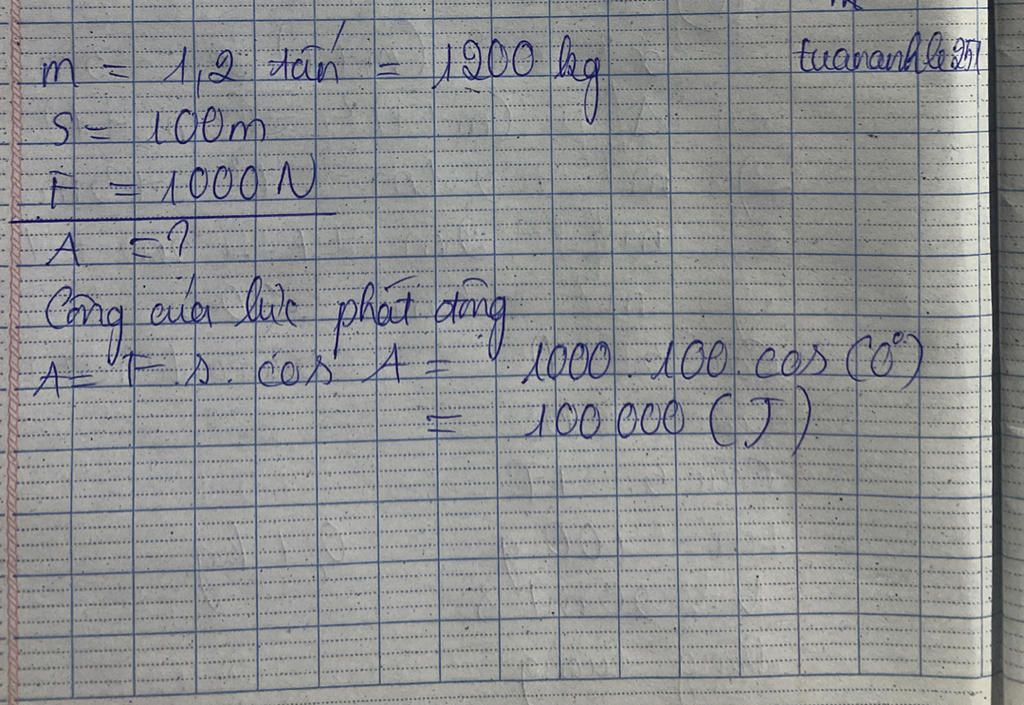 m = 1,2 tấn = 1200 kg
tuananhle251
S = 100m
F = 1000 N
A = ?
Công của lực phát động
A = F . s . cos A = 1000 . 100 . cos (0°)
= 100 000 (J)